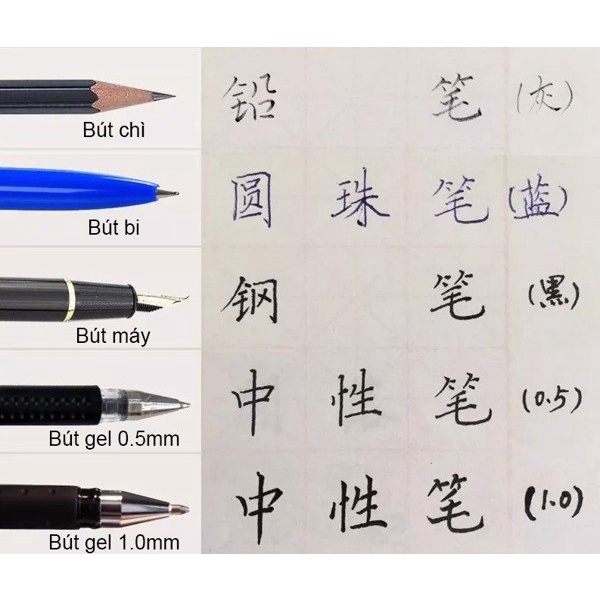 Bút chì
铅 笔 (灰)
Bút bi
圆 珠 笔 (蓝)
Bút máy
钢 笔 (黑)
Bút gel 0.5mm
中 性 笔 (0.5)
Bút gel 1.0mm
中 性 笔 (1.0)